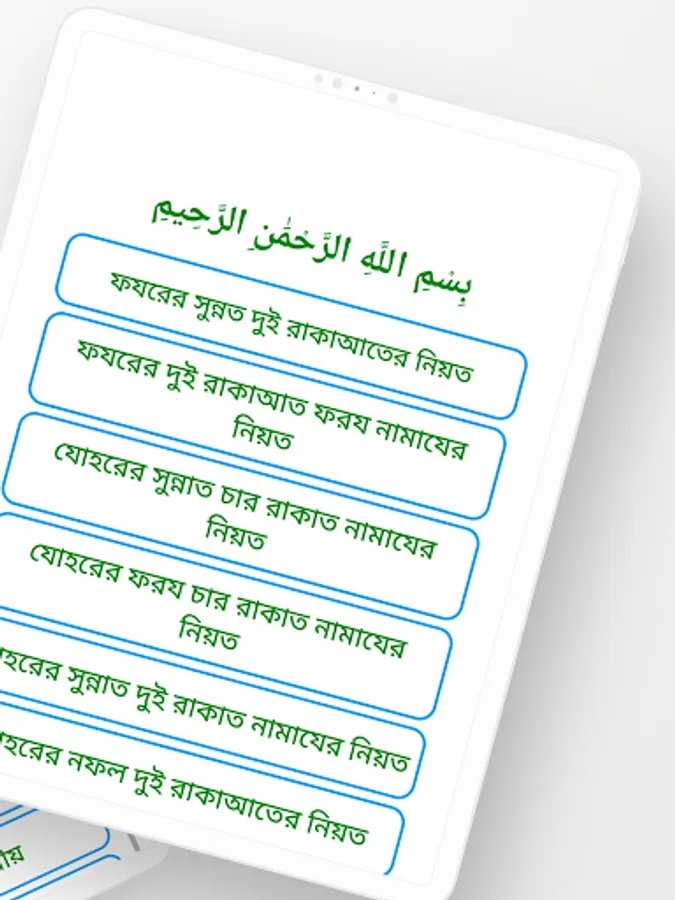 بِسْمِ اللَّهِ الرَّحْمَٰنِ الرَّحِيمِ
ফযরের সুন্নত দুই রাকাআতের নিয়ত
ফযরের দুই রাকাআত ফরয নামাযের
নিয়ত
যোহরের সুন্নাত চার রাকাত নামাযের
নিয়ত
যোহরের ফরয চার রাকাত নামাযের
নিয়ত
সুন্নাত দুই রাকাত নামাযের নিয়ত
নফল দুই রাকাআতের নিয়ত